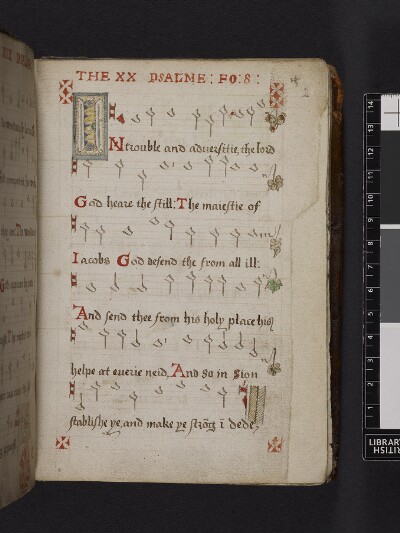 THE XX PSALME: FO: 8:
2
INtrouble and adversitie, the lord
God heare the still: The maiestie of
Iacobs God defend the from all ill:
And send thee from his holy place his
helpe at euerie neid, And so in Sion
stablishe ye, and make ye strōg ī dede
14
13
12
11
10
9
8
7
6
5
4
3
2
1
LIBRARY
BRITISH